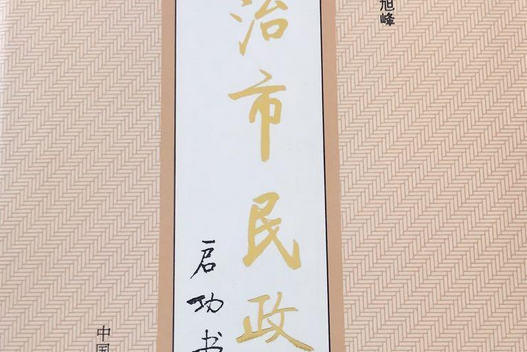 旭峰
治市民政
启功书
中国